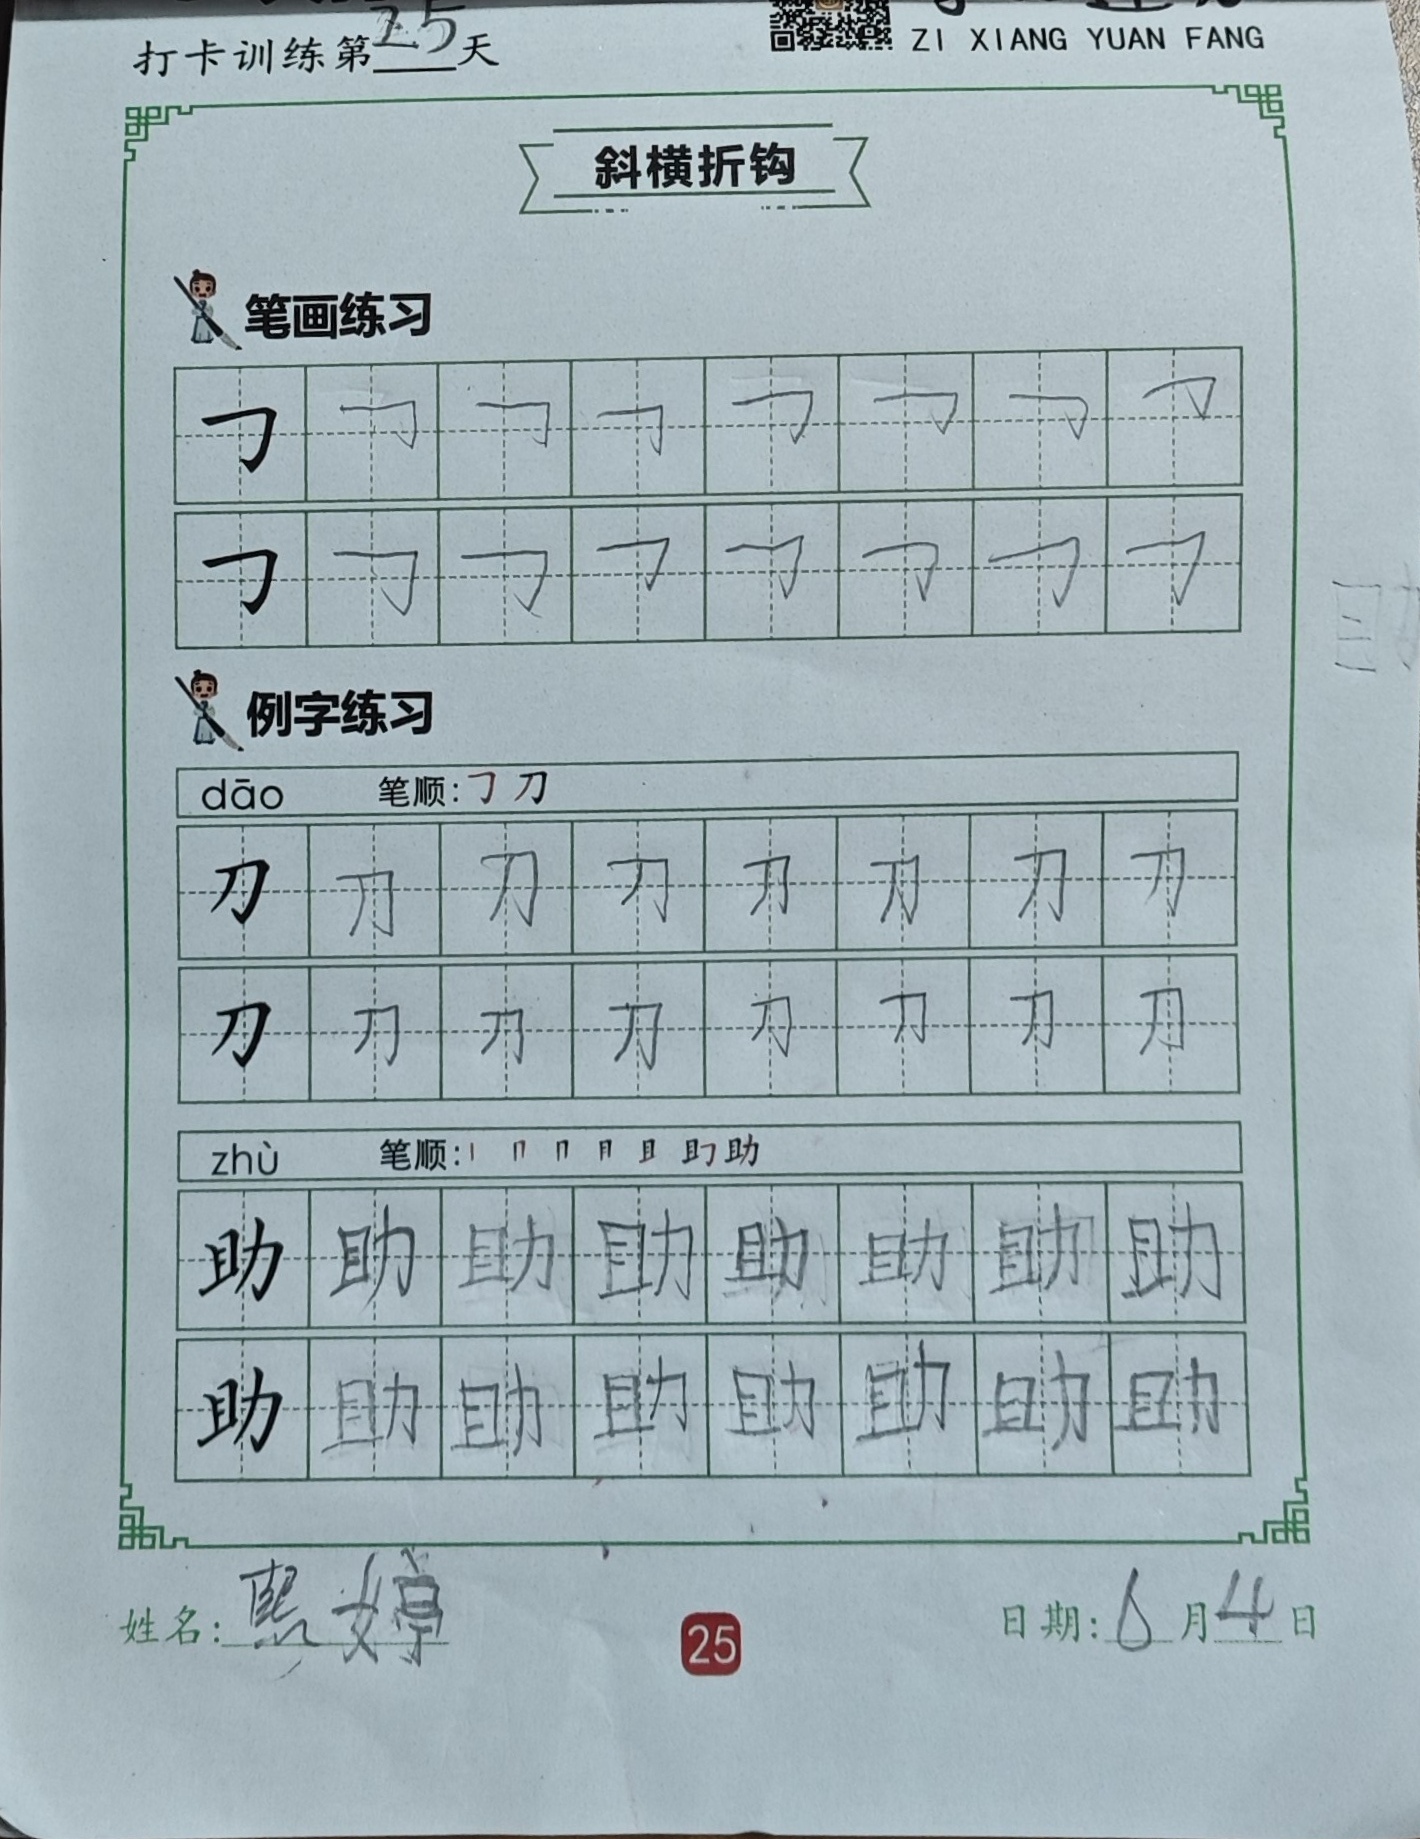 打卡训练第25天
ZI XIANG YUAN FANG
斜横折钩
笔画练习
㇆ ㇆ ㇆ ㇆ ㇆ ㇆ ㇆ ㇆
㇆ ㇆ ㇆ ㇆ ㇆ ㇆ ㇆ ㇆
例字练习
dāo 笔顺: ㇆ 刀
刀 刀 刀 刀 刀 刀 刀 刀
刀 刀 刀 刀 刀 刀 刀 刀
zhù 笔顺: 助
助 助 助 助 助 助 助 助
助 助 助 助 助 助 助 助
姓名: 熙婷
25
日期: 6月4日